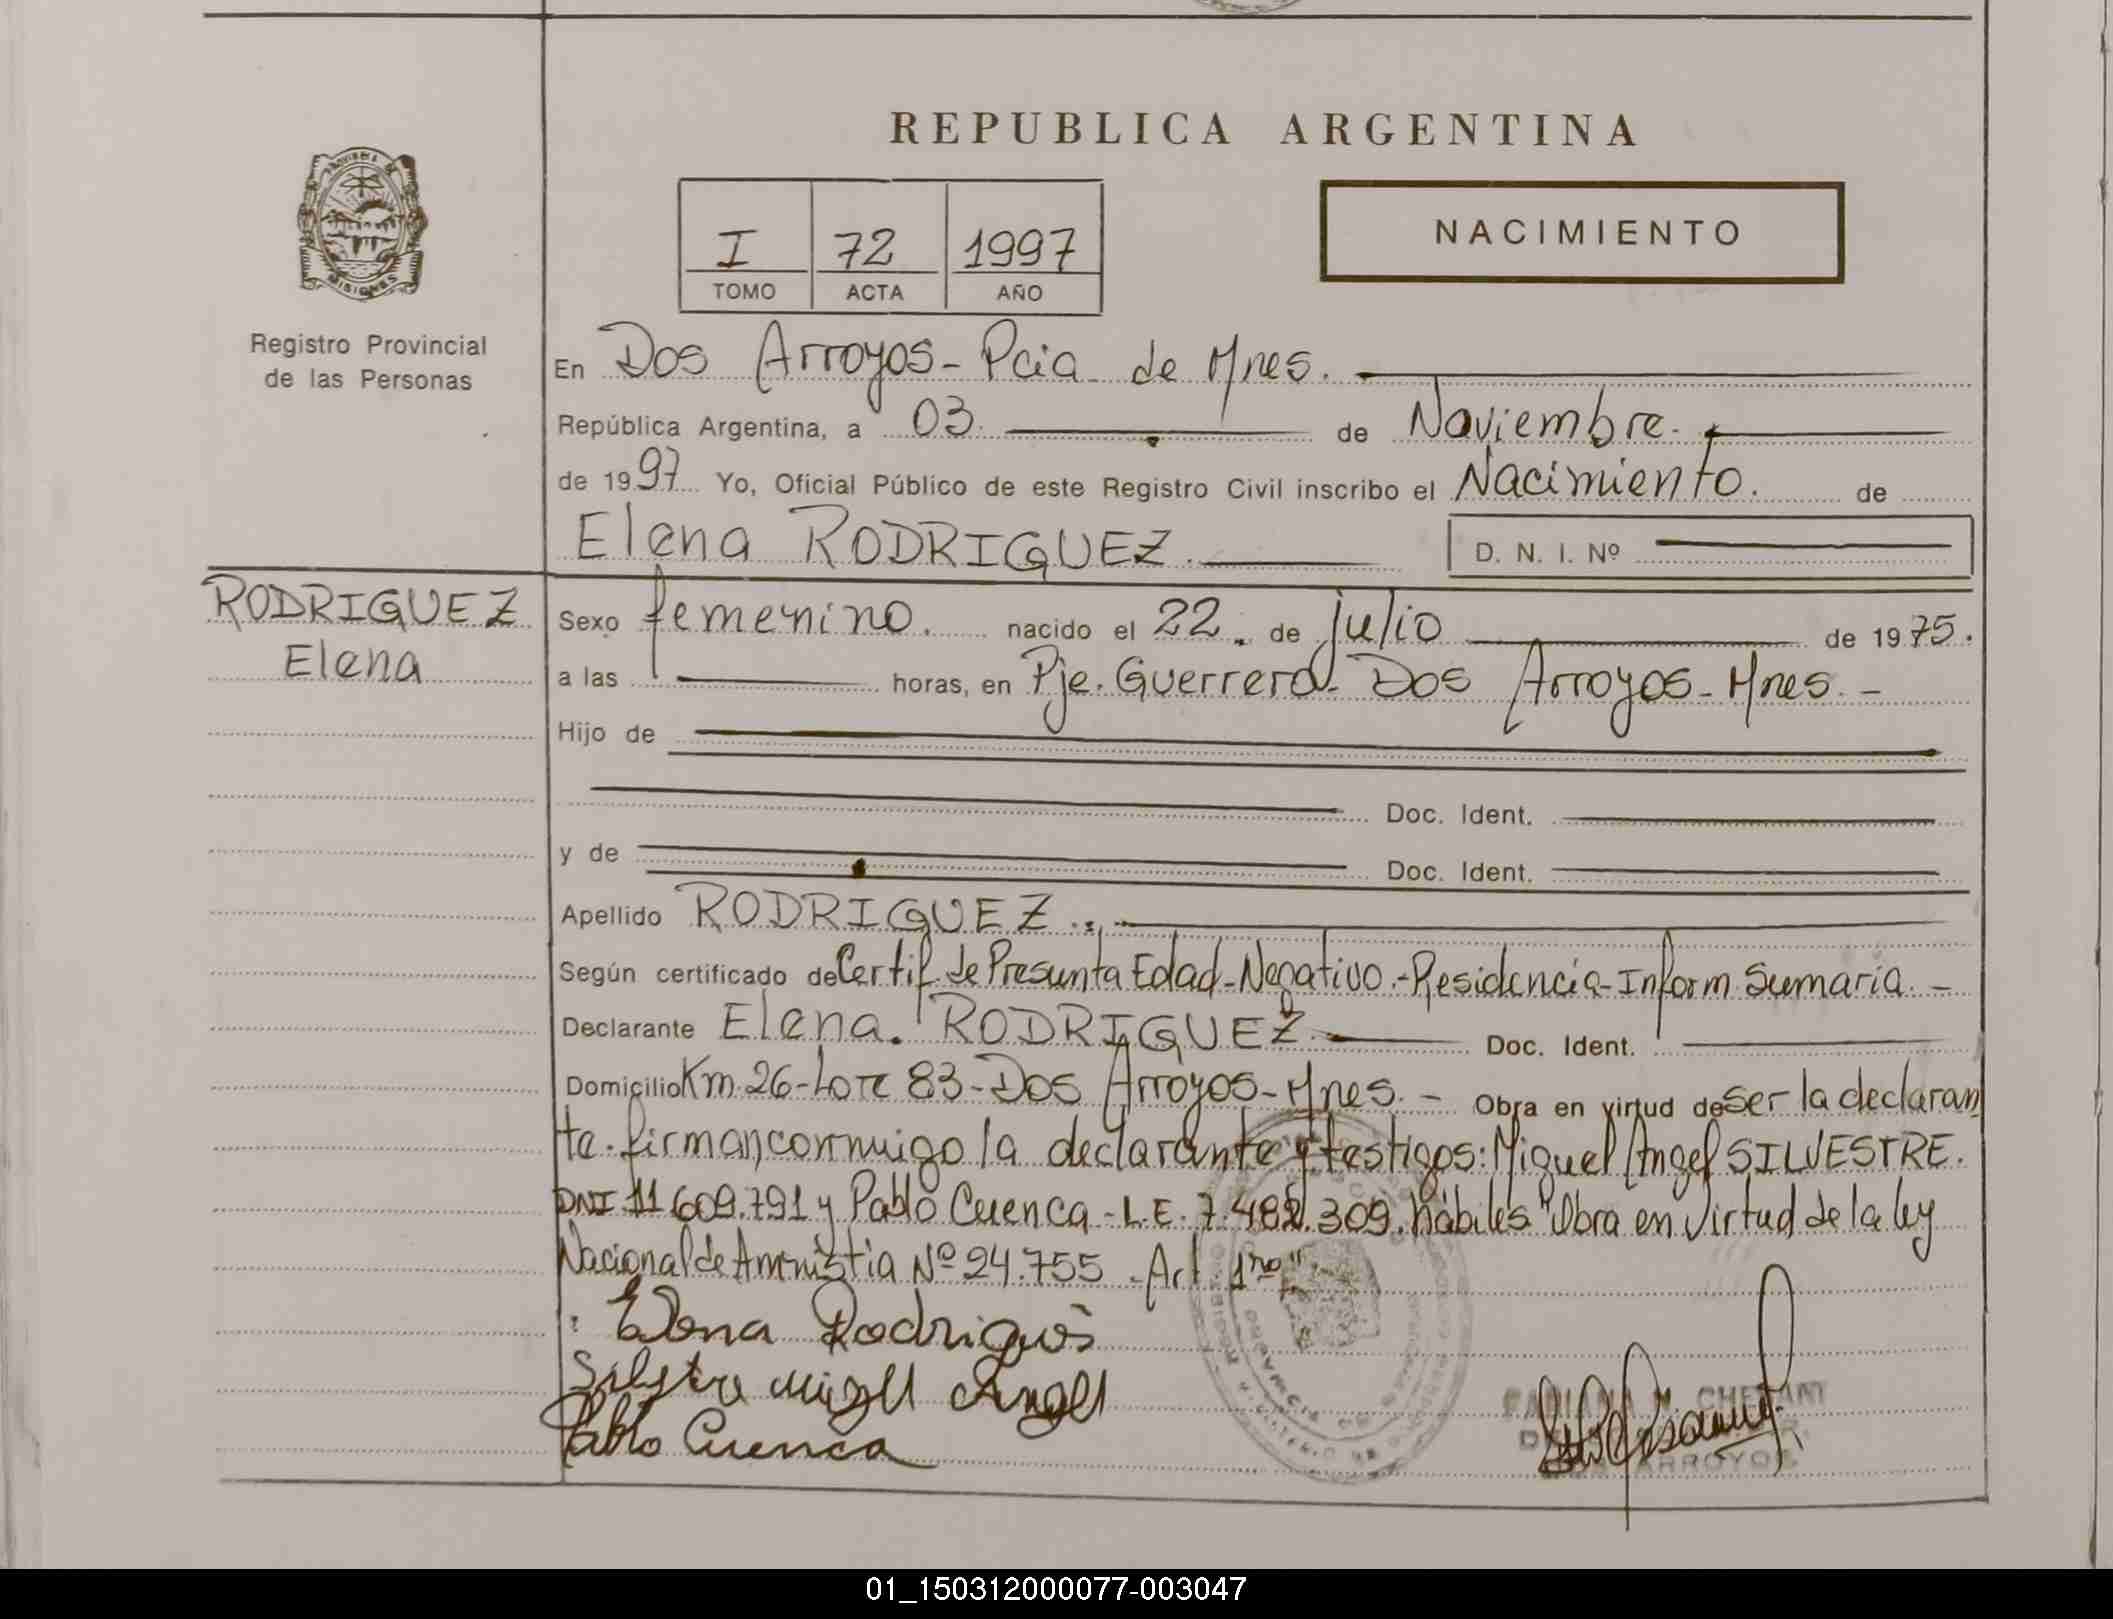 REPUBLICA ARGENTINA
NACIMIENTO
I 72 1997
TOMO ACTA AÑO
PROVINCIA DE
MISIONES
Registro Provincial
de las Personas
En Dos Arroyos - Pcia de Mnes.
República Argentina, a 03. de Noviembre.
de 1997 Yo, Oficial Público de este Registro Civil inscribo el Nacimiento. de
Elena RODRIGUEZ.
D. N. I. Nº
RODRIGUEZ
Elena
Sexo femenino. nacido el 22. de julio de 1975.
a las horas, en Pje. Guerrero - Dos Arroyos - Mnes. -
Hijo de
Doc. Ident.
y de Doc. Ident.
Apellido RODRIGUEZ.
Según certificado de Certif. de Presunta Edad - Negativo. - Residencia - Inform Sumaria. -
Declarante Elena. RODRIGUEZ. Doc. Ident.
Domicilio Km. 26 - Lote 83 - Dos Arroyos - Mnes. - Obra en virtud de ser la declaran
te. firman conmigo la declarante y testigos: Miguel Angel SILVESTRE.
DNI 11 609.791 y Pablo Cuenca - L.E. 7.482.309. hábiles "Obra en virtud de la ley
Nacional de Amnistia Nº 24.755 - Art. 1ro"
Elena Rodrigues
Silvestre Miguel Angel
Pablo Cuenca
ARROYOS
01_150312000077-003047